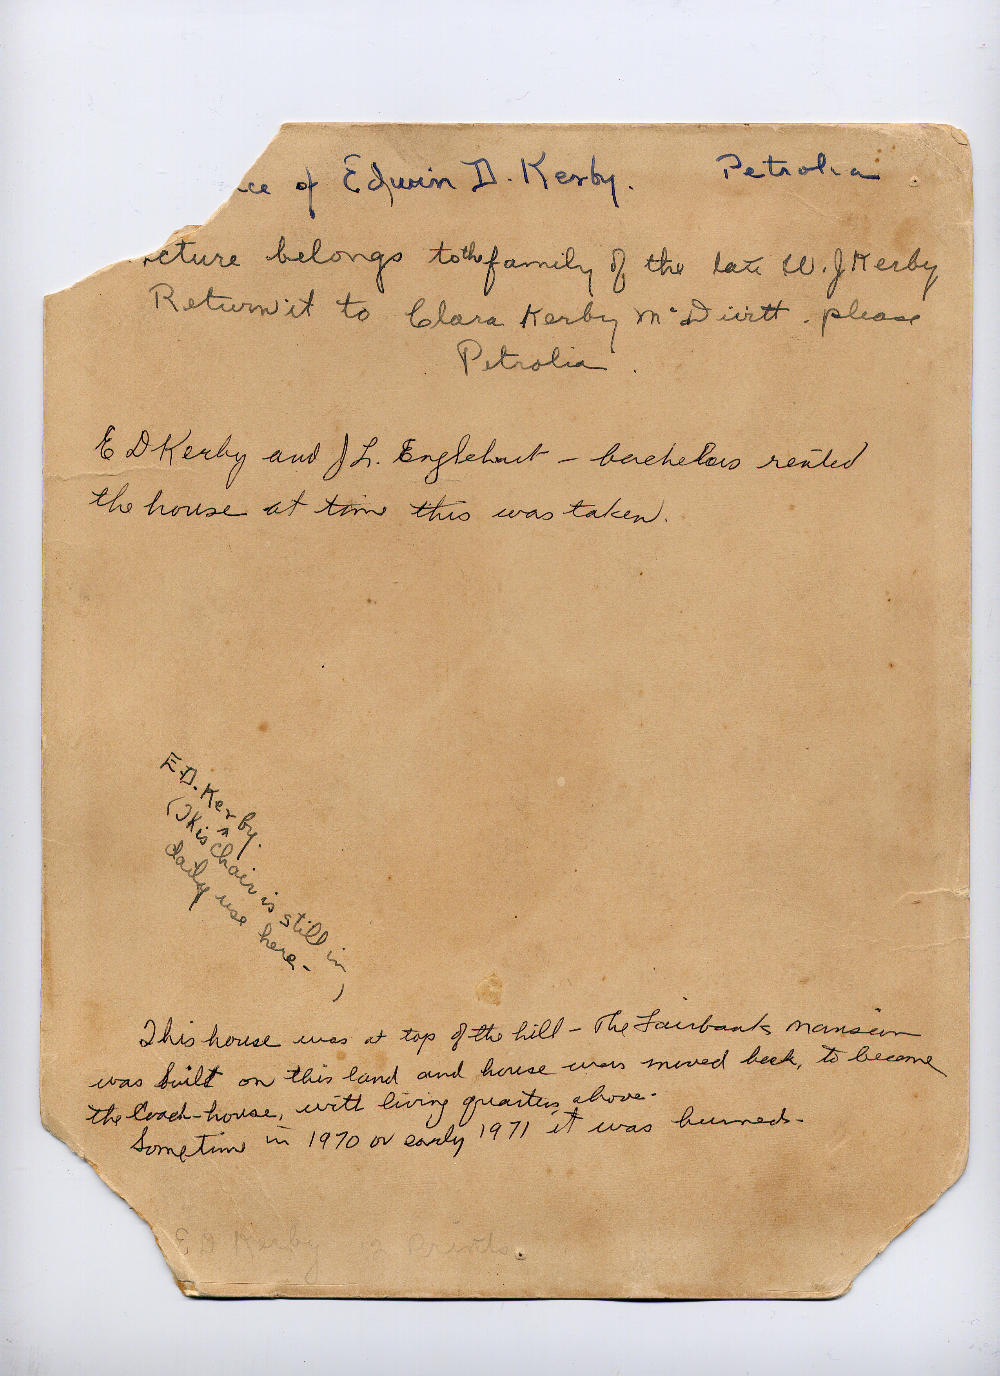 ce of Edwin D. Kerby. Petrolia
icture belongs to the family of the late W. J Kerby
Return it to Clara Kerby McDiirtt. please
Petrolia.
E D Kerby and J L. Englehart – bachelors rented
the house at time this was taken.
E.D. Kerby.
(This chair is still in
daily use here.)
This house was at top of the hill – The Fairbank Mansion
was built on this land and house was moved back, to become
the Coach-house, with living quarters above.
Sometime in 1970 or early 1971 it was burned.
E D Kerby 2 Prints.